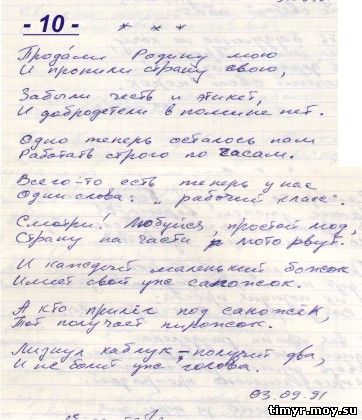 - 10 -
* * *
Прода́ли Родину мою
И пропили страну свою,
Забыли честь и этикет,
И добродетели в помине нет.
Одно теперь осталось нам
Работать строго по часам.
Всего-то есть теперь у нас
Одни слова: „рабочий класс".
Смотри! Любуйся, простой люд,
Страну на части люто рвут.
И каждый маленький божок
Имеет свой уже сапожок.
А кто прилёг под сапожек,
Тот получает пирожок.
Лизнул каблук, – получит два,
И не болит уже голова.
03.09.91
timyr.moy.su